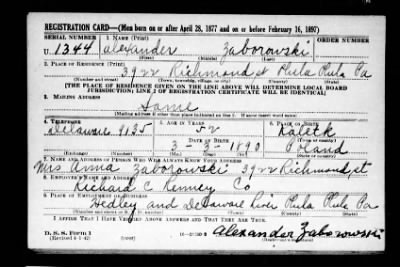 REGISTRATION CARD—(Men born on or after April 28, 1877 and on or before February 16, 1897)
SERIAL NUMBER 1. NAME (Print) ORDER NUMBER
U. 1344 Alexander Zaborowski
(First) (Middle) (Last)
2. PLACE OF RESIDENCE (Print)
3922 Richmond st Phila Phila Pa
(Number and street) (Town, township, village, or city) (County) (State)
[THE PLACE OF RESIDENCE GIVEN ON THE LINE ABOVE WILL DETERMINE LOCAL BOARD
JURISDICTION; LINE 2 OF REGISTRATION CERTIFICATE WILL BE IDENTICAL]
3. MAILING ADDRESS
Same
[Mailing address if other than place indicated on line 2. If same insert word same]
4. TELEPHONE 5. AGE IN YEARS 6. PLACE OF BIRTH
Delaware 9135 52
DATE OF BIRTH (Town or county)
3 - 3 - 1890 Poland
(Exchange) (Number) (Mo.) (Day) (Yr.) (State or country)
7. NAME AND ADDRESS OF PERSON WHO WILL ALWAYS KNOW YOUR ADDRESS
Mrs. Anna Zaborowski 3922 Richmond st
8. EMPLOYER'S NAME AND ADDRESS
Richard C Remney Co
9. PLACE OF EMPLOYMENT OR BUSINESS
Hedley and Delaware River Phila Phila Pa
(Number and street or R. F. D. number) (Town) (County) (State)
I AFFIRM THAT I HAVE VERIFIED ABOVE ANSWERS AND THAT THEY ARE TRUE.
D. S. S. Form 1
(Revised 4-1-42) (over) Alexander Zaborowski